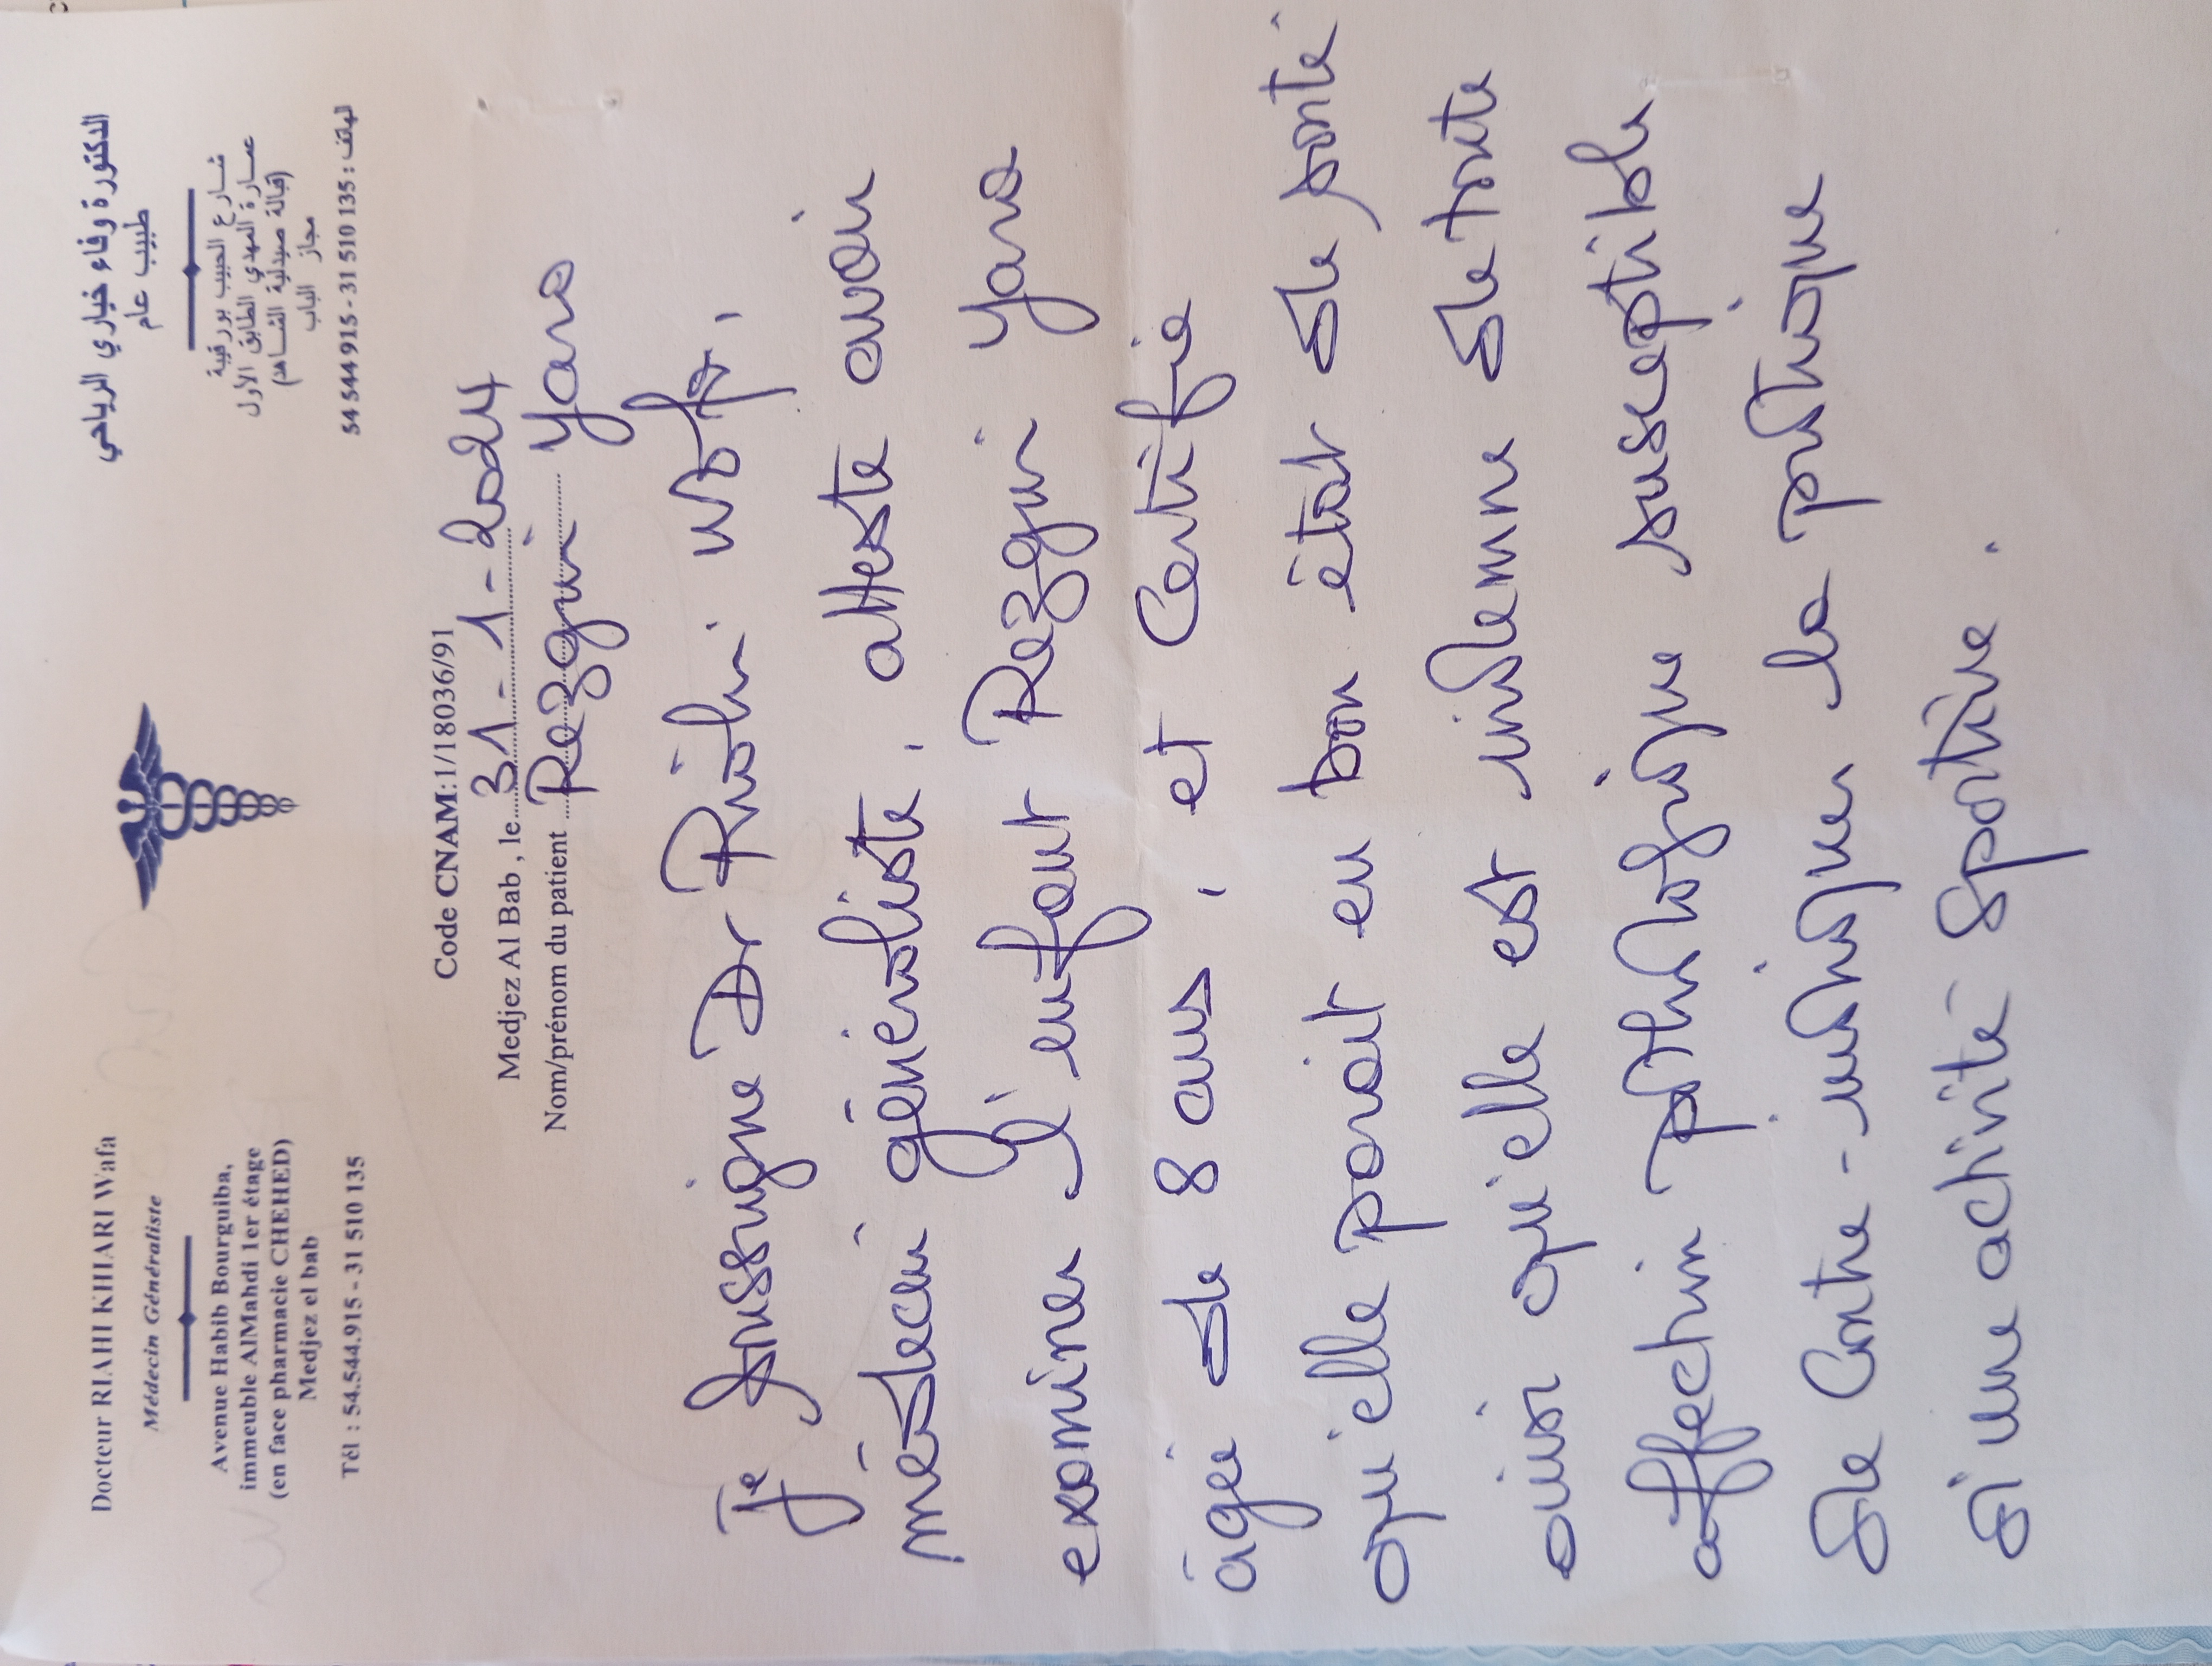 Docteur RIAHI KHIARI Wafa
Médecin Généraliste
Avenue Habib Bourguiba,
immeuble AlMahdi 1er étage
(en face pharmacie CHEHED)
Medjez el bab
Tél : 54.544.915 - 31 510 135
الدكتورة وفاء خياري الرياحي
طبيب عام
شارع الحبيب بورقيبة
عمارة المهدي الطابق الأول
(قبالة صيدلية الشاهد)
مجاز الباب
الهاتف : 135 510 31 - 915 544 54
Code CNAM:1/18036/91
Medjez Al Bab , le 31-1-2024
Nom/prénom du patient Rezgui Yara
Je soussigne Dr Riahi Wafa,
médecin généraliste, atteste avoir
examiner l'enfant Rezgui Yara
âgée de 8 ans, et certifie
qu'elle parait en bon état de santé
ainsi qu'elle est indemne de toute
affection pathologique susceptible
de contre-indiquer la pratique
d'une activité sportive.